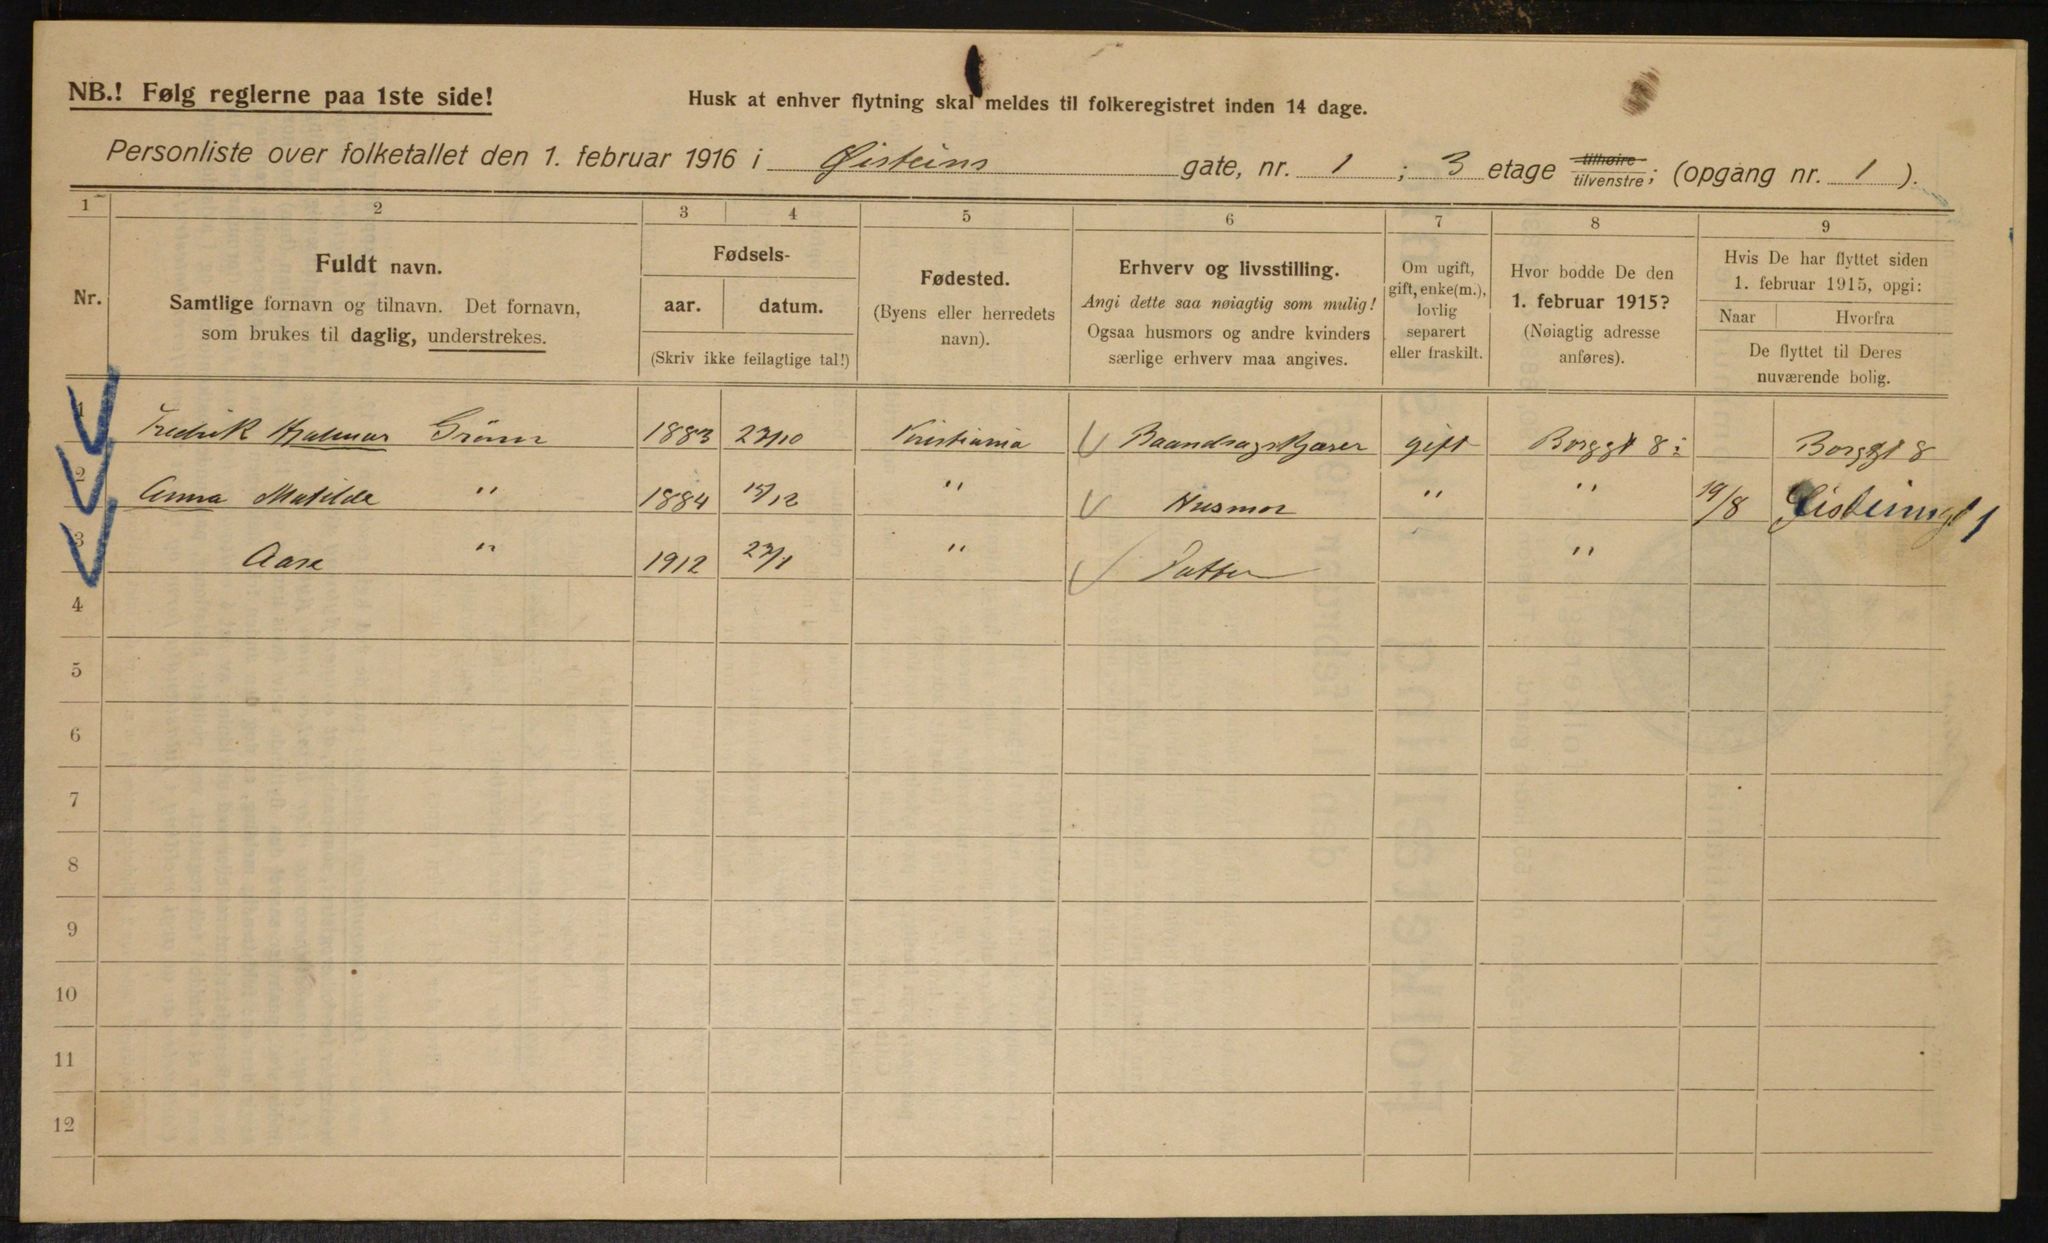 NB.! Følg reglerne paa 1ste side!
Husk at enhver flytning skal meldes til folkeregistret inden 14 dage.
Personliste over folketallet den 1. februar 1916 i Øisteins gate, nr. 1 ; 3 etage tilhøire tilvenstre; (opgang nr. 1 ).
1 2 3 4 5 6 7 8 9
Nr.
Fuldt navn.
Samtlige fornavn og tilnavn. Det fornavn,
som brukes til daglig, understrekes.
Fødsels-
aar. datum.
(Skriv ikke feilagtige tal!)
Fødested.
(Byens eller herredets
navn).
Erhverv og livsstilling.
Angi dette saa nøiagtig som mulig!
Ogsaa husmors og andre kvinders
særlige erhverv maa angives.
Om ugift,
gift, enke(m.),
lovlig
separert
eller fraskilt.
Hvor bodde De den
1. februar 1915?
(Nøiagtig adresse
anføres).
Hvis De har flyttet siden
1. februar 1915, opgi:
Naar Hvorfra
De flyttet til Deres
nuværende bolig.
1 Fredrik Hjalmar Grøner 1883 23/10 Kristiania Baandsagskjærer gift Borggt 8 Borggt 8
2 Anna Matilde " 1884 15/12 " Husmor " " 19/8 Øisteinsgt 1
3 Aase " 1912 23/1 " Datter "
4
5
6
7
8
9
10
11
12